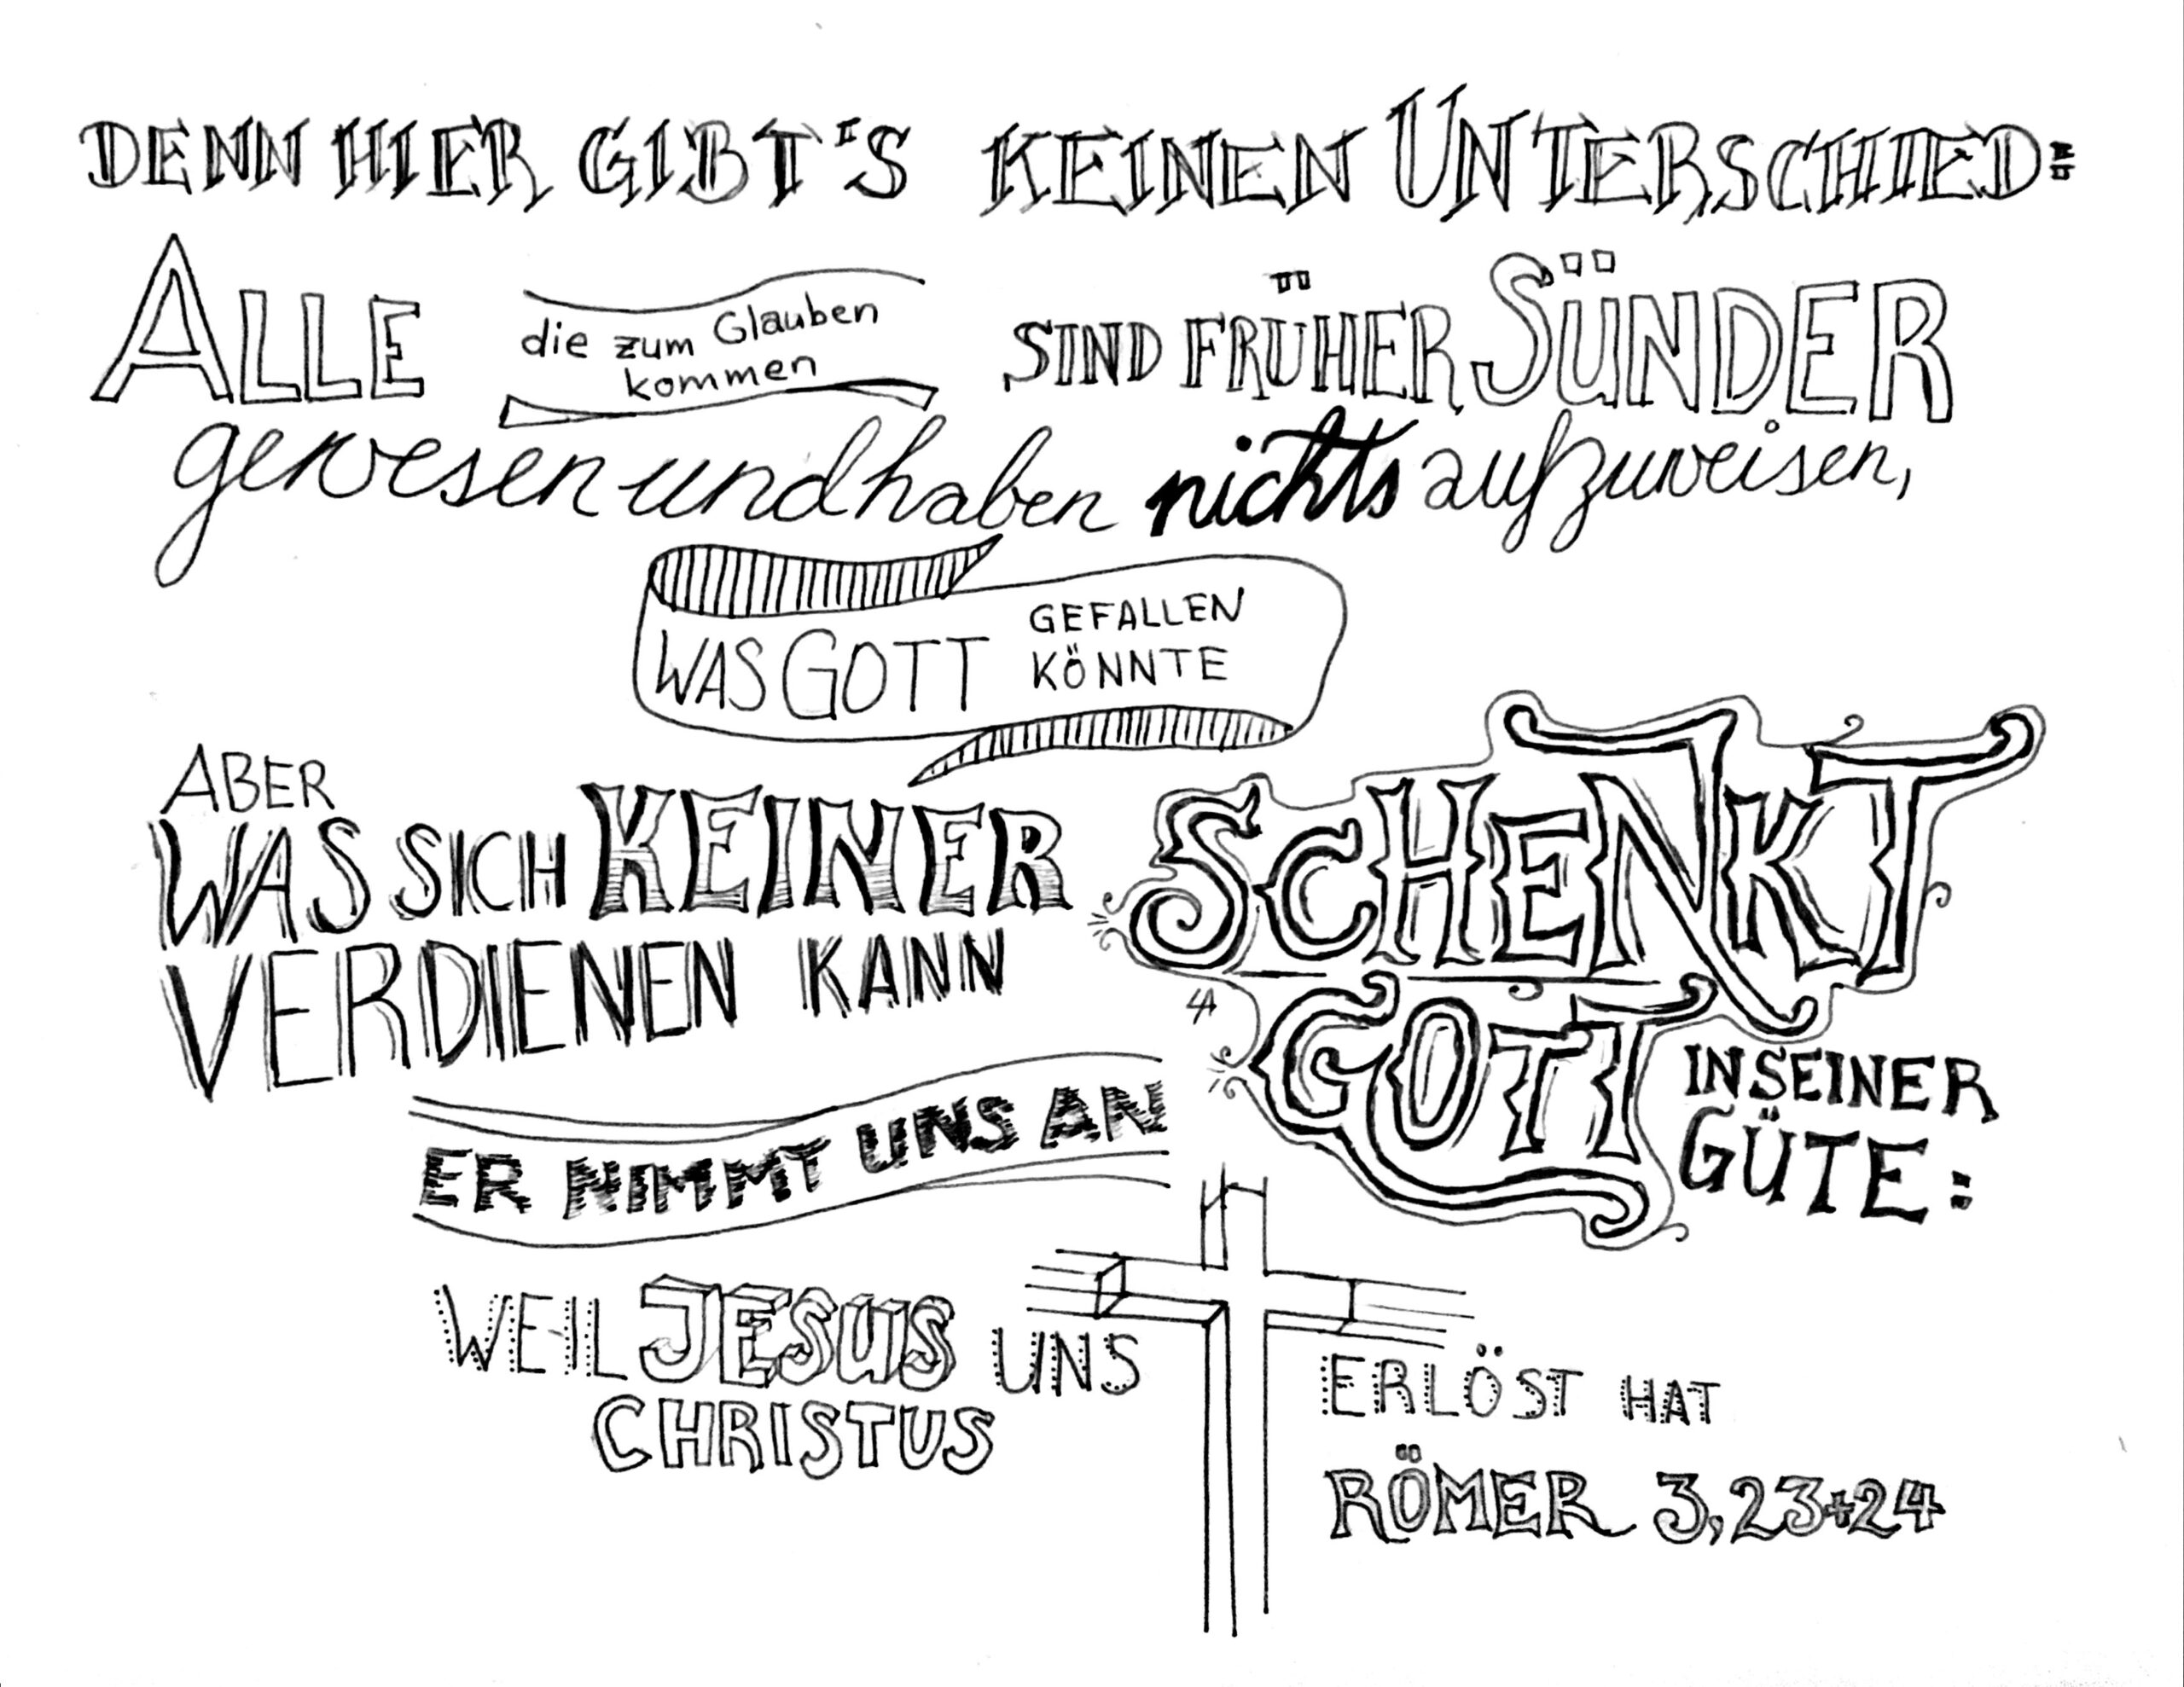 DENN HIER GIBT'S KEINEN UNTERSCHIED:
ALLE die zum Glauben kommen SIND FRÜHER SÜNDER
gewesen und haben nichts aufzuweisen,
WAS GOTT GEFALLEN KÖNNTE
ABER
WAS SICH KEINER
VERDIENEN KANN
SCHENKT
GOTT IN SEINER
GÜTE:
ER NIMMT UNS AN
WEIL JESUS UNS
CHRISTUS
ERLÖST HAT
RÖMER 3,23+24